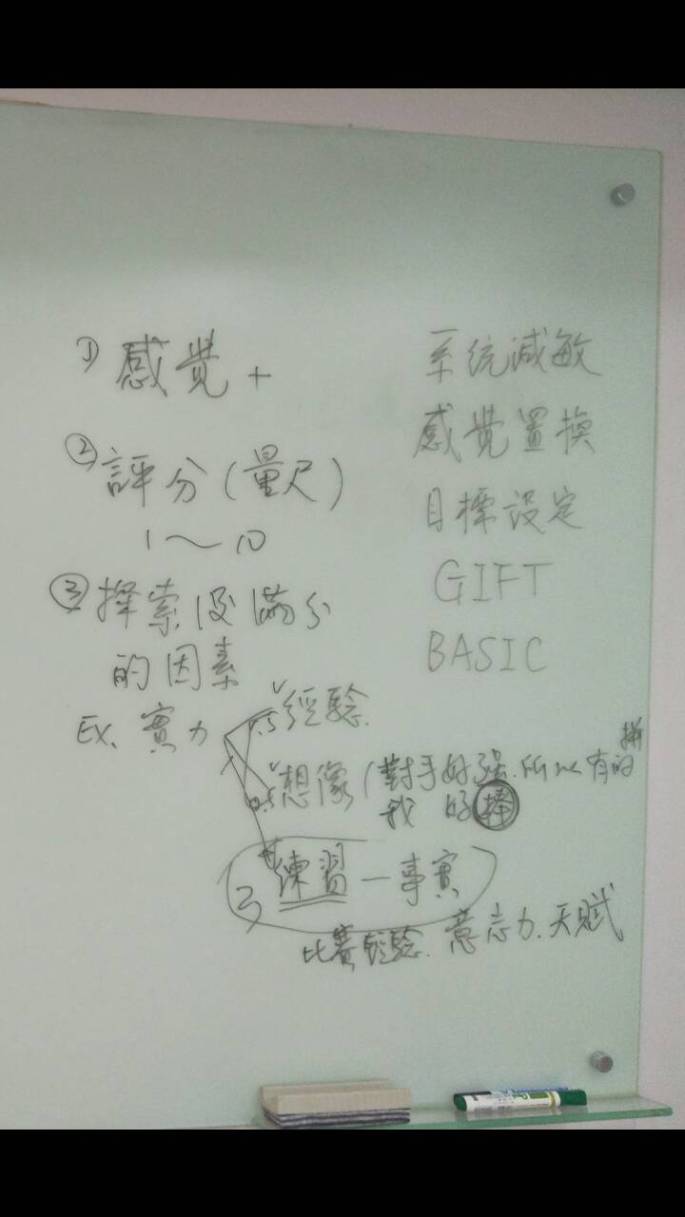 ① 感覺 +
② 評分(量尺)
1～10
③ 探索沒滿分
的因素
Ex. 實力
1.5 經驗
0.5 想像(對手好强.所以有的拼
我 好棒
3 練習-事實
比賽經驗.意志力.天賦
系统减敏
感覺置換
目標設定
GIFT
BASIC